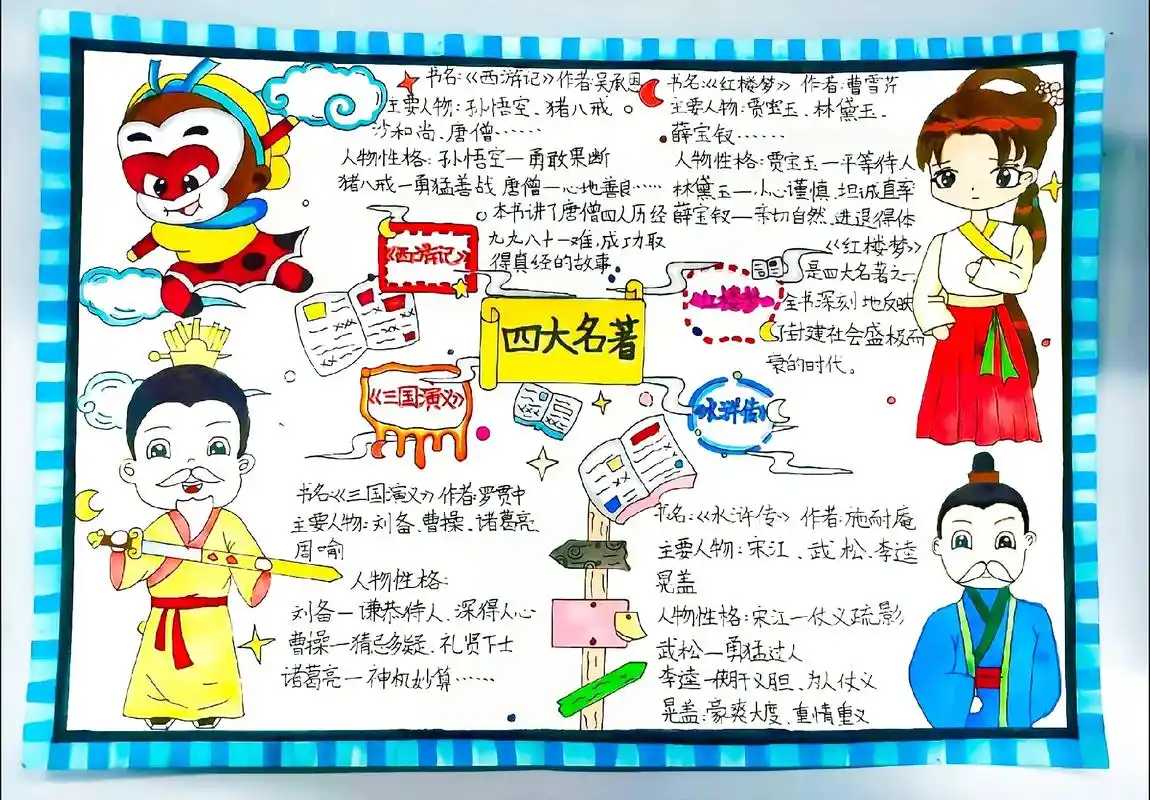 书名:《西游记》作者:吴承恩
主要人物:孙悟空、猪八戒
沙和尚、唐僧……
人物性格:孙悟空—勇敢果断
猪八戒—勇猛善战,唐僧—心地善良……
本书讲了唐僧四人历经
九九八十一难,成功取
得真经的故事
书名:《红楼梦》 作者:曹雪芹
主要人物:贾宝玉、林黛玉、
薛宝钗……
人物性格:贾宝玉—平等待人
林黛玉—小心谨慎、坦诚直率
薛宝钗—亲切自然、进退得体
《红楼梦》
是四大名著之一
全书深刻地反映
了封建社会盛极而
衰的时代。
《西游记》
红楼梦
四大名著
《三国演义》
《水浒传》
书名:《三国演义》作者:罗贯中
主要人物:刘备、曹操、诸葛亮、
周喻
人物性格:
刘备—谦恭待人、深得人心
曹操—猜忌多疑、礼贤下士
诸葛亮—神机妙算……
书名:《水浒传》 作者:施耐庵
主要人物:宋江、武松、李逵
晃盖
人物性格:宋江—仗义疏影
武松—勇猛过人
李逵—侠肝义胆、为人仗义
晃盖:豪爽大度、重情重义